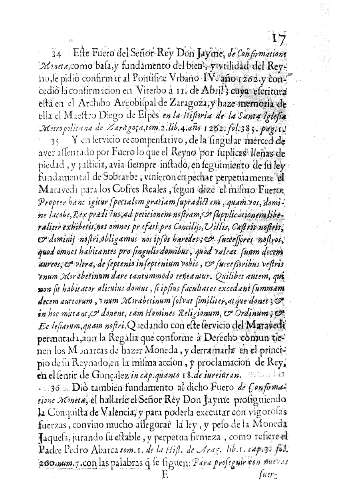 17
34 Este Fuero del Señor Rey Don Jayme, de Confirmatione
Monetæ, como basa, y fundamento del bien, y vtilidad del Rey-
no, se pidiò confirmar al Pontifice Vrbano IV. año 1262. y con-
cediò la confirmacion en Viterbo à 11. de Abril; cuya escritura
està en el Archibo Arcobispal de Zaragoza, y haze memoria de
ella el Maestro Diego de Espès en la Historia de la Santa Iglesia
Metropolitana de Zaragoza, tom. 2. lib. 4. año 1262. fol. 385. pag. 1.
35 Y en servicio recompensativo, de la singular merced de
aver assentado por Fuero lo que el Reyno por suplicas llenas de
piedad, y justicia, avia siempre instado, en seguimiento de su ley
fundamental de Sobrarbe, vinieron en pechar perpetuamente el
Maravedi para los Cofres Reales, segun dize el mismo Fuero:
Propter hanc igitur specialem gratiam supradictam, quam vos, domi-
ne Iacobe, Rex prædictus, ad petitionem nostram, & supplicationem libe-
raliter exhibetis, nos omnes pro
& dominij nostri, obligamus nos ipsos hæredes, & successores nostros,
quod omnes habitantes pro singulis domibus, quod valeat suum decem
aureos, & vltra, de septenio in septenium vobis, & successoribus vestris
vnum Morabetinum dare tantummodo teneantur. Quilibet autem, qui
non sit habitator alicuius domus, si ipsius facultates excedant summam
decem aureorum, vnum Morabetinum solvat similiter, atque donet; &
in hoc mittat, & donent, tam Homines Religionum, & Ordinum, &
Ecclesiarum, quam nostri. Quedando con este servicio del Maravedi
permutada, aun la Regalia que conforme à Derecho comun tie-
nen los Monarcas de hazer Moneda, y derramarla en el princi-
pio de su Reynado, en la misma accion, y proclamacion de Rey,
en el sentir de Gonçalez in cap. quanto 18. de iureiuran.
36 Diò tambien fundamento al dicho Fuero de Confirma-
tione Monetæ, el hallarse el Señor Rey Don Jayme prosiguiendo
la Conquista de Valencia, y para poderla executar con vigorosas
fuerzas, convino mucho assegurar la ley, y peso de la Moneda
Jaquesa, jurando su estable, y perpetua firmeza, como refiere el
Padre Pedro Abarca tom. 1. de la Hist. de Arag. lib. 1. cap. 3. fol.
260. num. 7. con las palabras q̃ se siguen: Para proseguir con nuevas
E fuer-